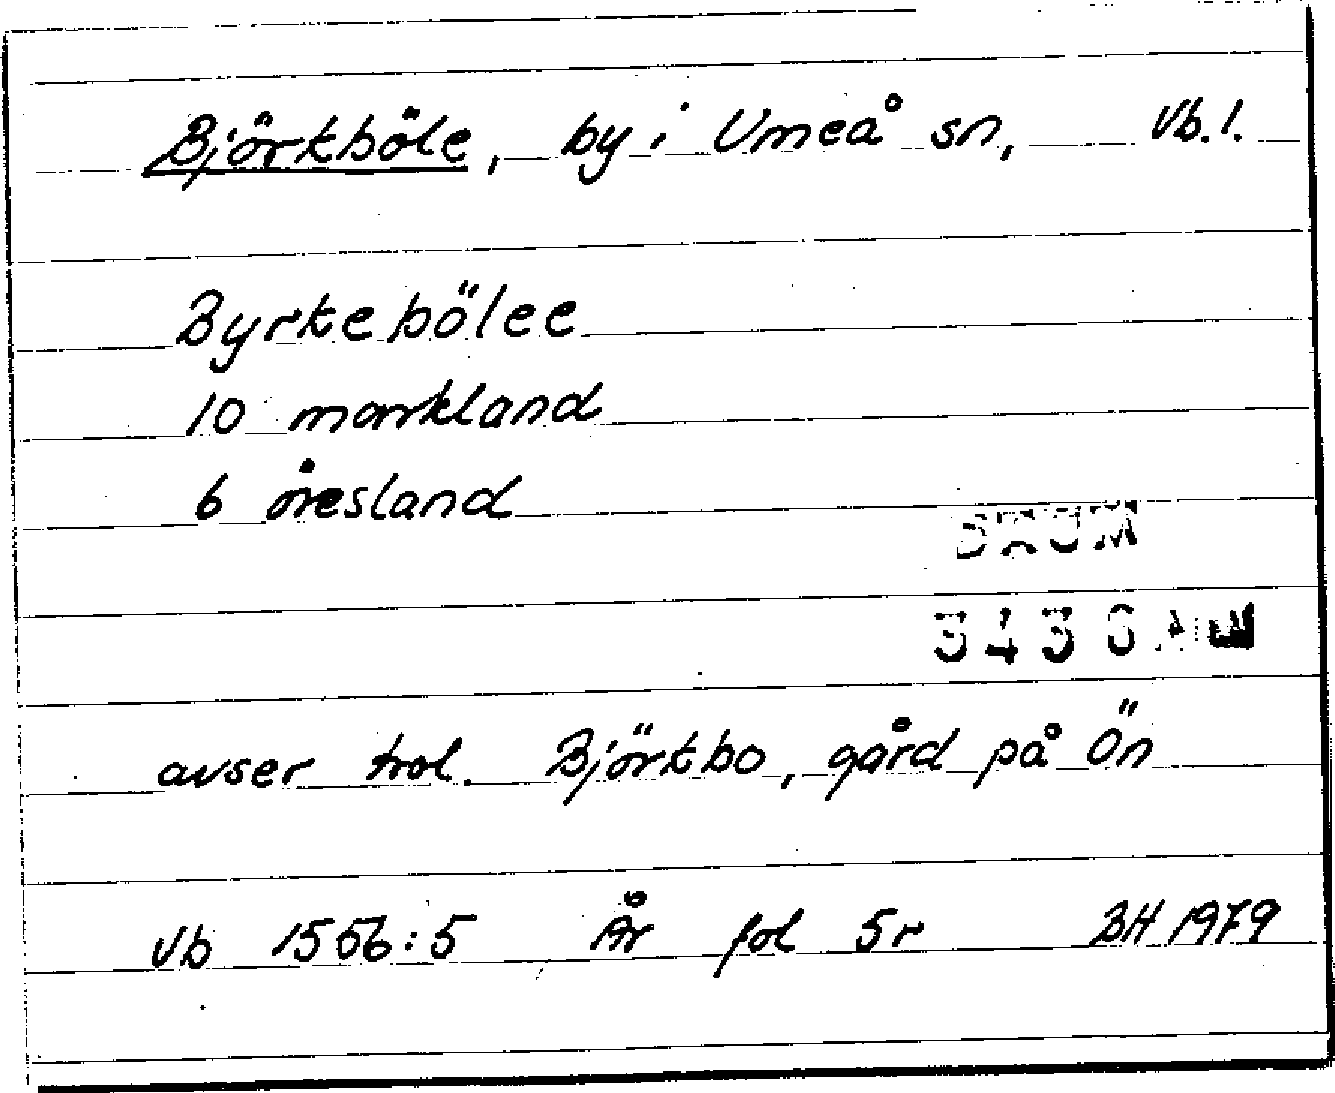 Björkböle, by i Umeå sn, Vb. l.
Byrkebölee
10 markland
6 öresland
DAUM
avser trol. Björkbo, gård på Ön
Vb 1556:5 År fol 5r BH 1979